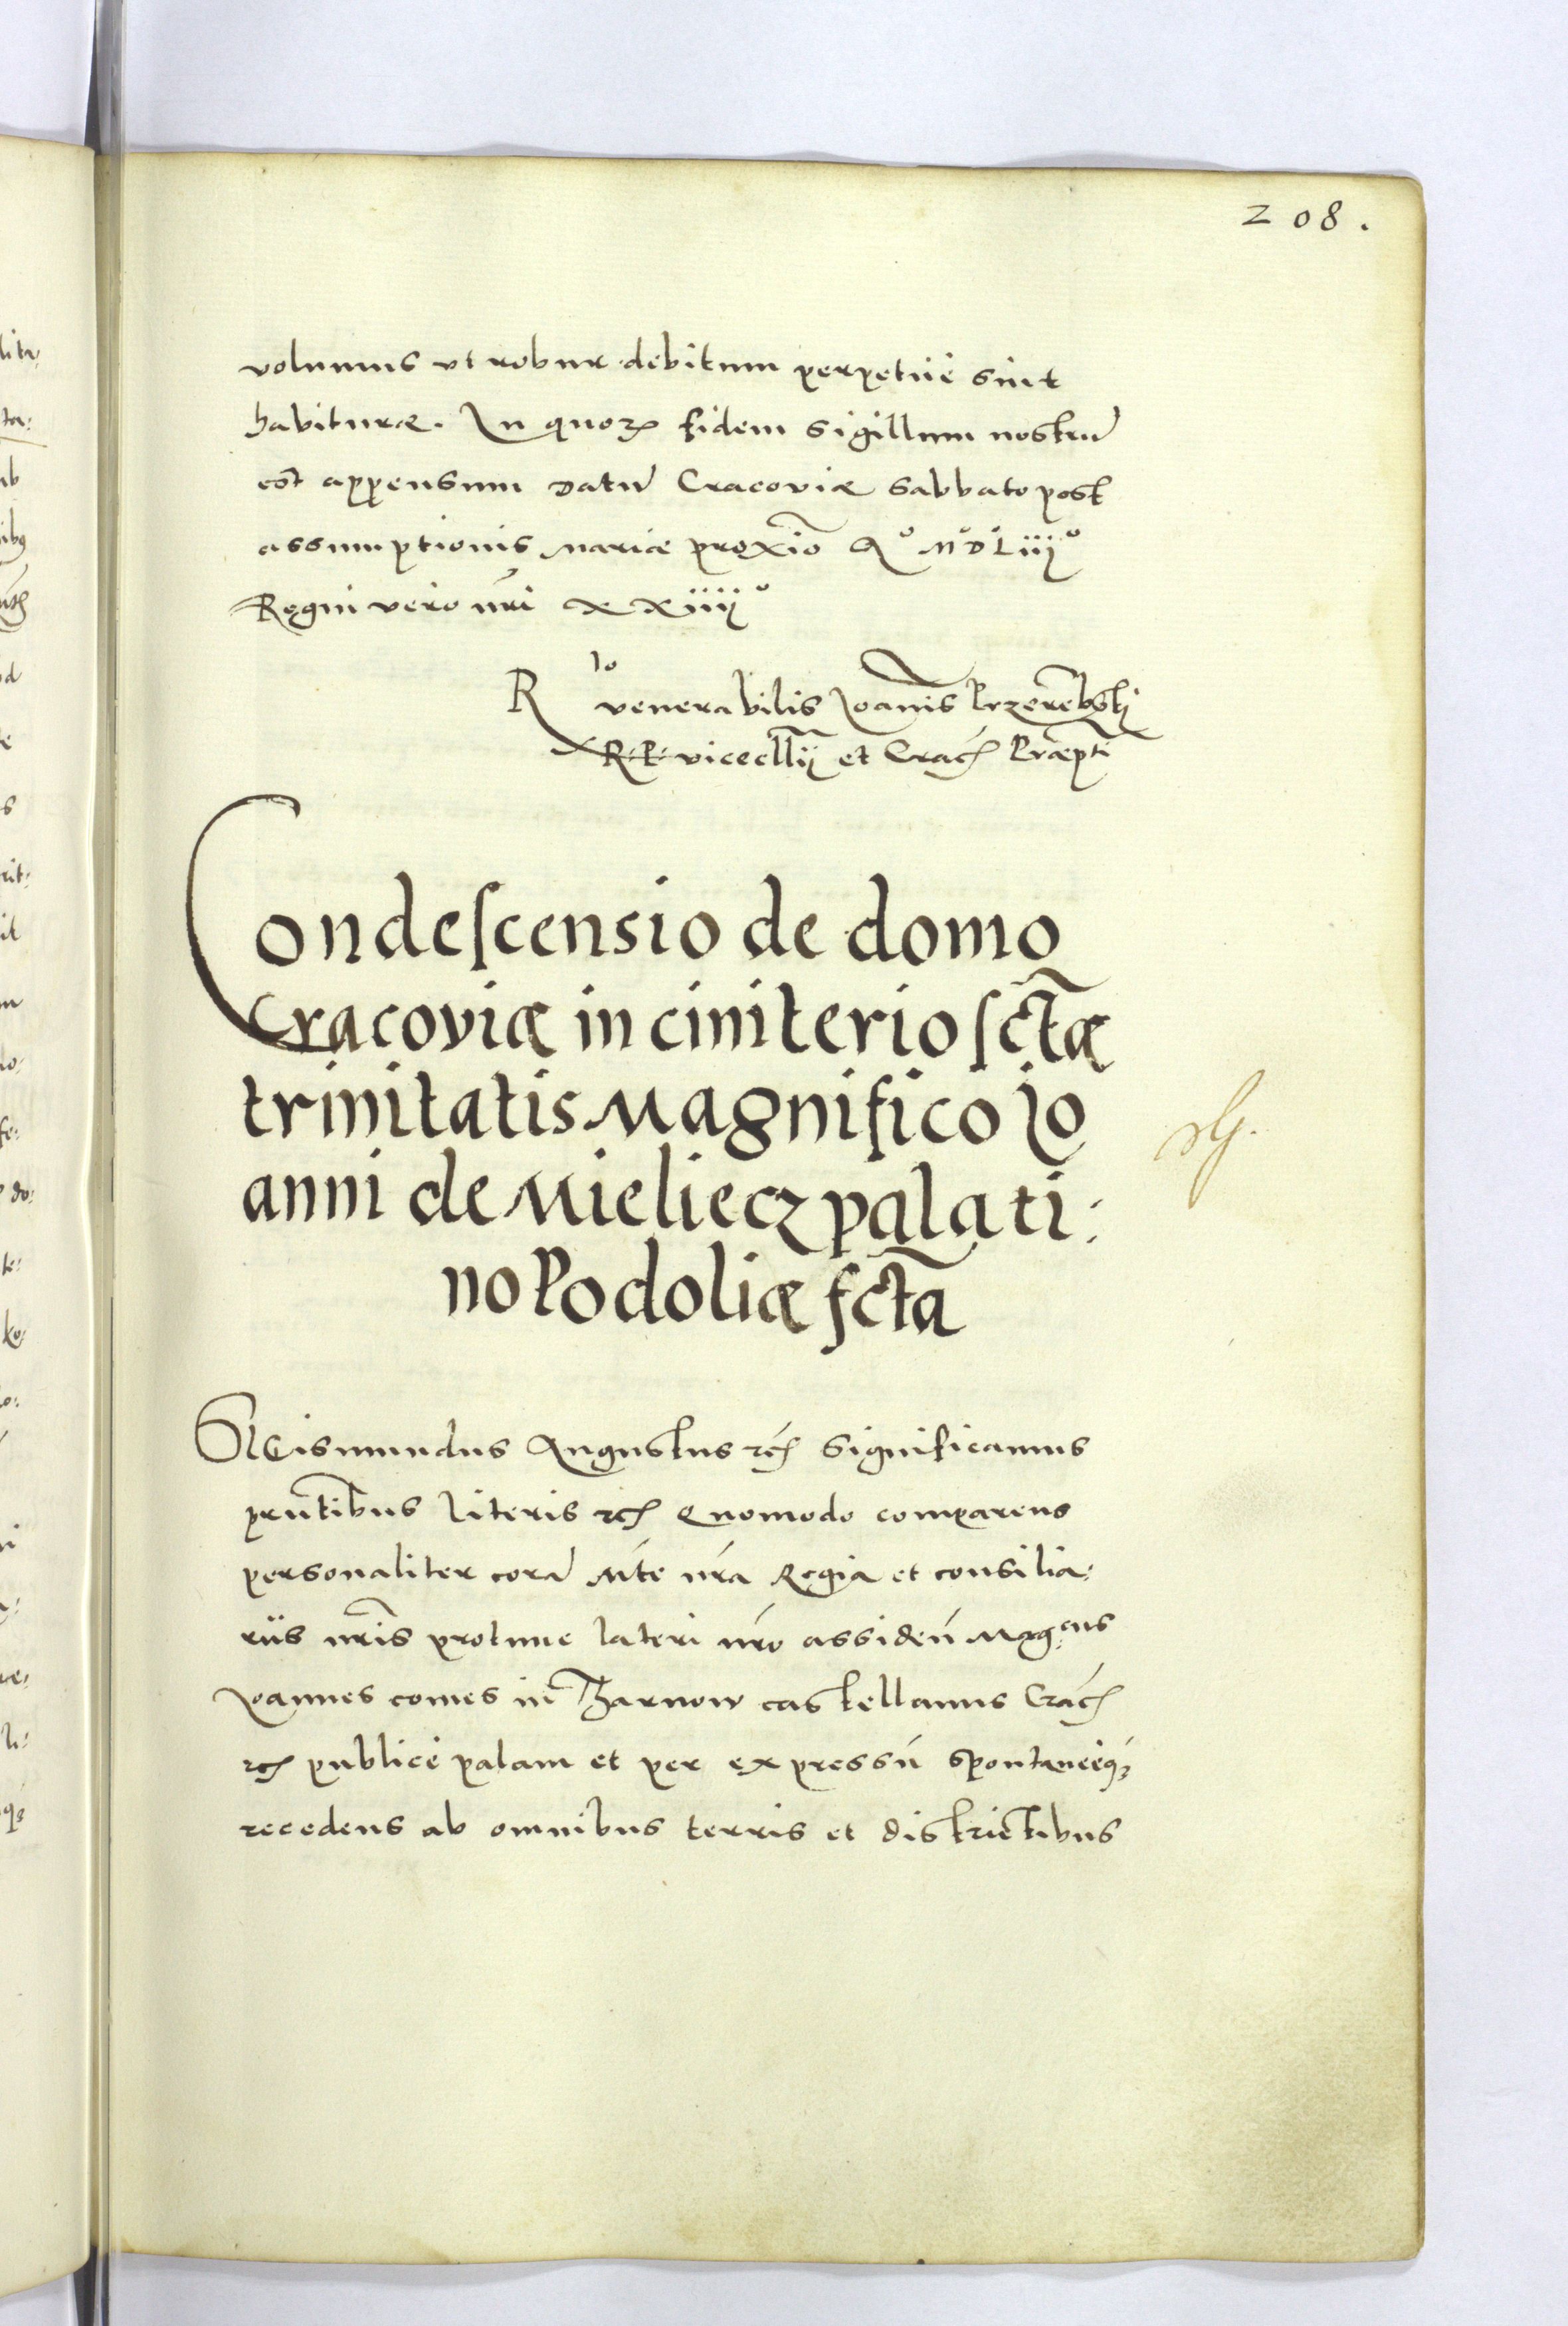 208.
volumus ut robur debitum perpetue sint
habituræ. In quorꝝ fidem sigillum nostrũ
est appensum Datũ Cracoviæ Sabbato post
assumptionis Mariæ proxiõ Aº Mº Dº Liiijº
Regni vero nr̃i xxiiiijº
R lo venerabilis Joañis Przerẽbskj
R. P. vicecllĩj et Crac̃ Præptĩ
Condescensio de domo
Cracoviæ in cimiterio sctæ̃
trinitatis Magnifico Jo
anni de Mieliecz palati:
no Podoliæ fctã
SIGismundus Augustus rc̃ significamus
prñtibus literis rc̃ Quomodo comparens
personaliter corã Mte nr̃a Regia et consilia:
riis nr̃is protunc lateri nr̃o assideñ Mag:cus
Joannes comes in Tharnow castellanus Crac̃
rc̃ publice palam et per expressũ spontaneeq3
recedens ab omnibus terris et districtibus